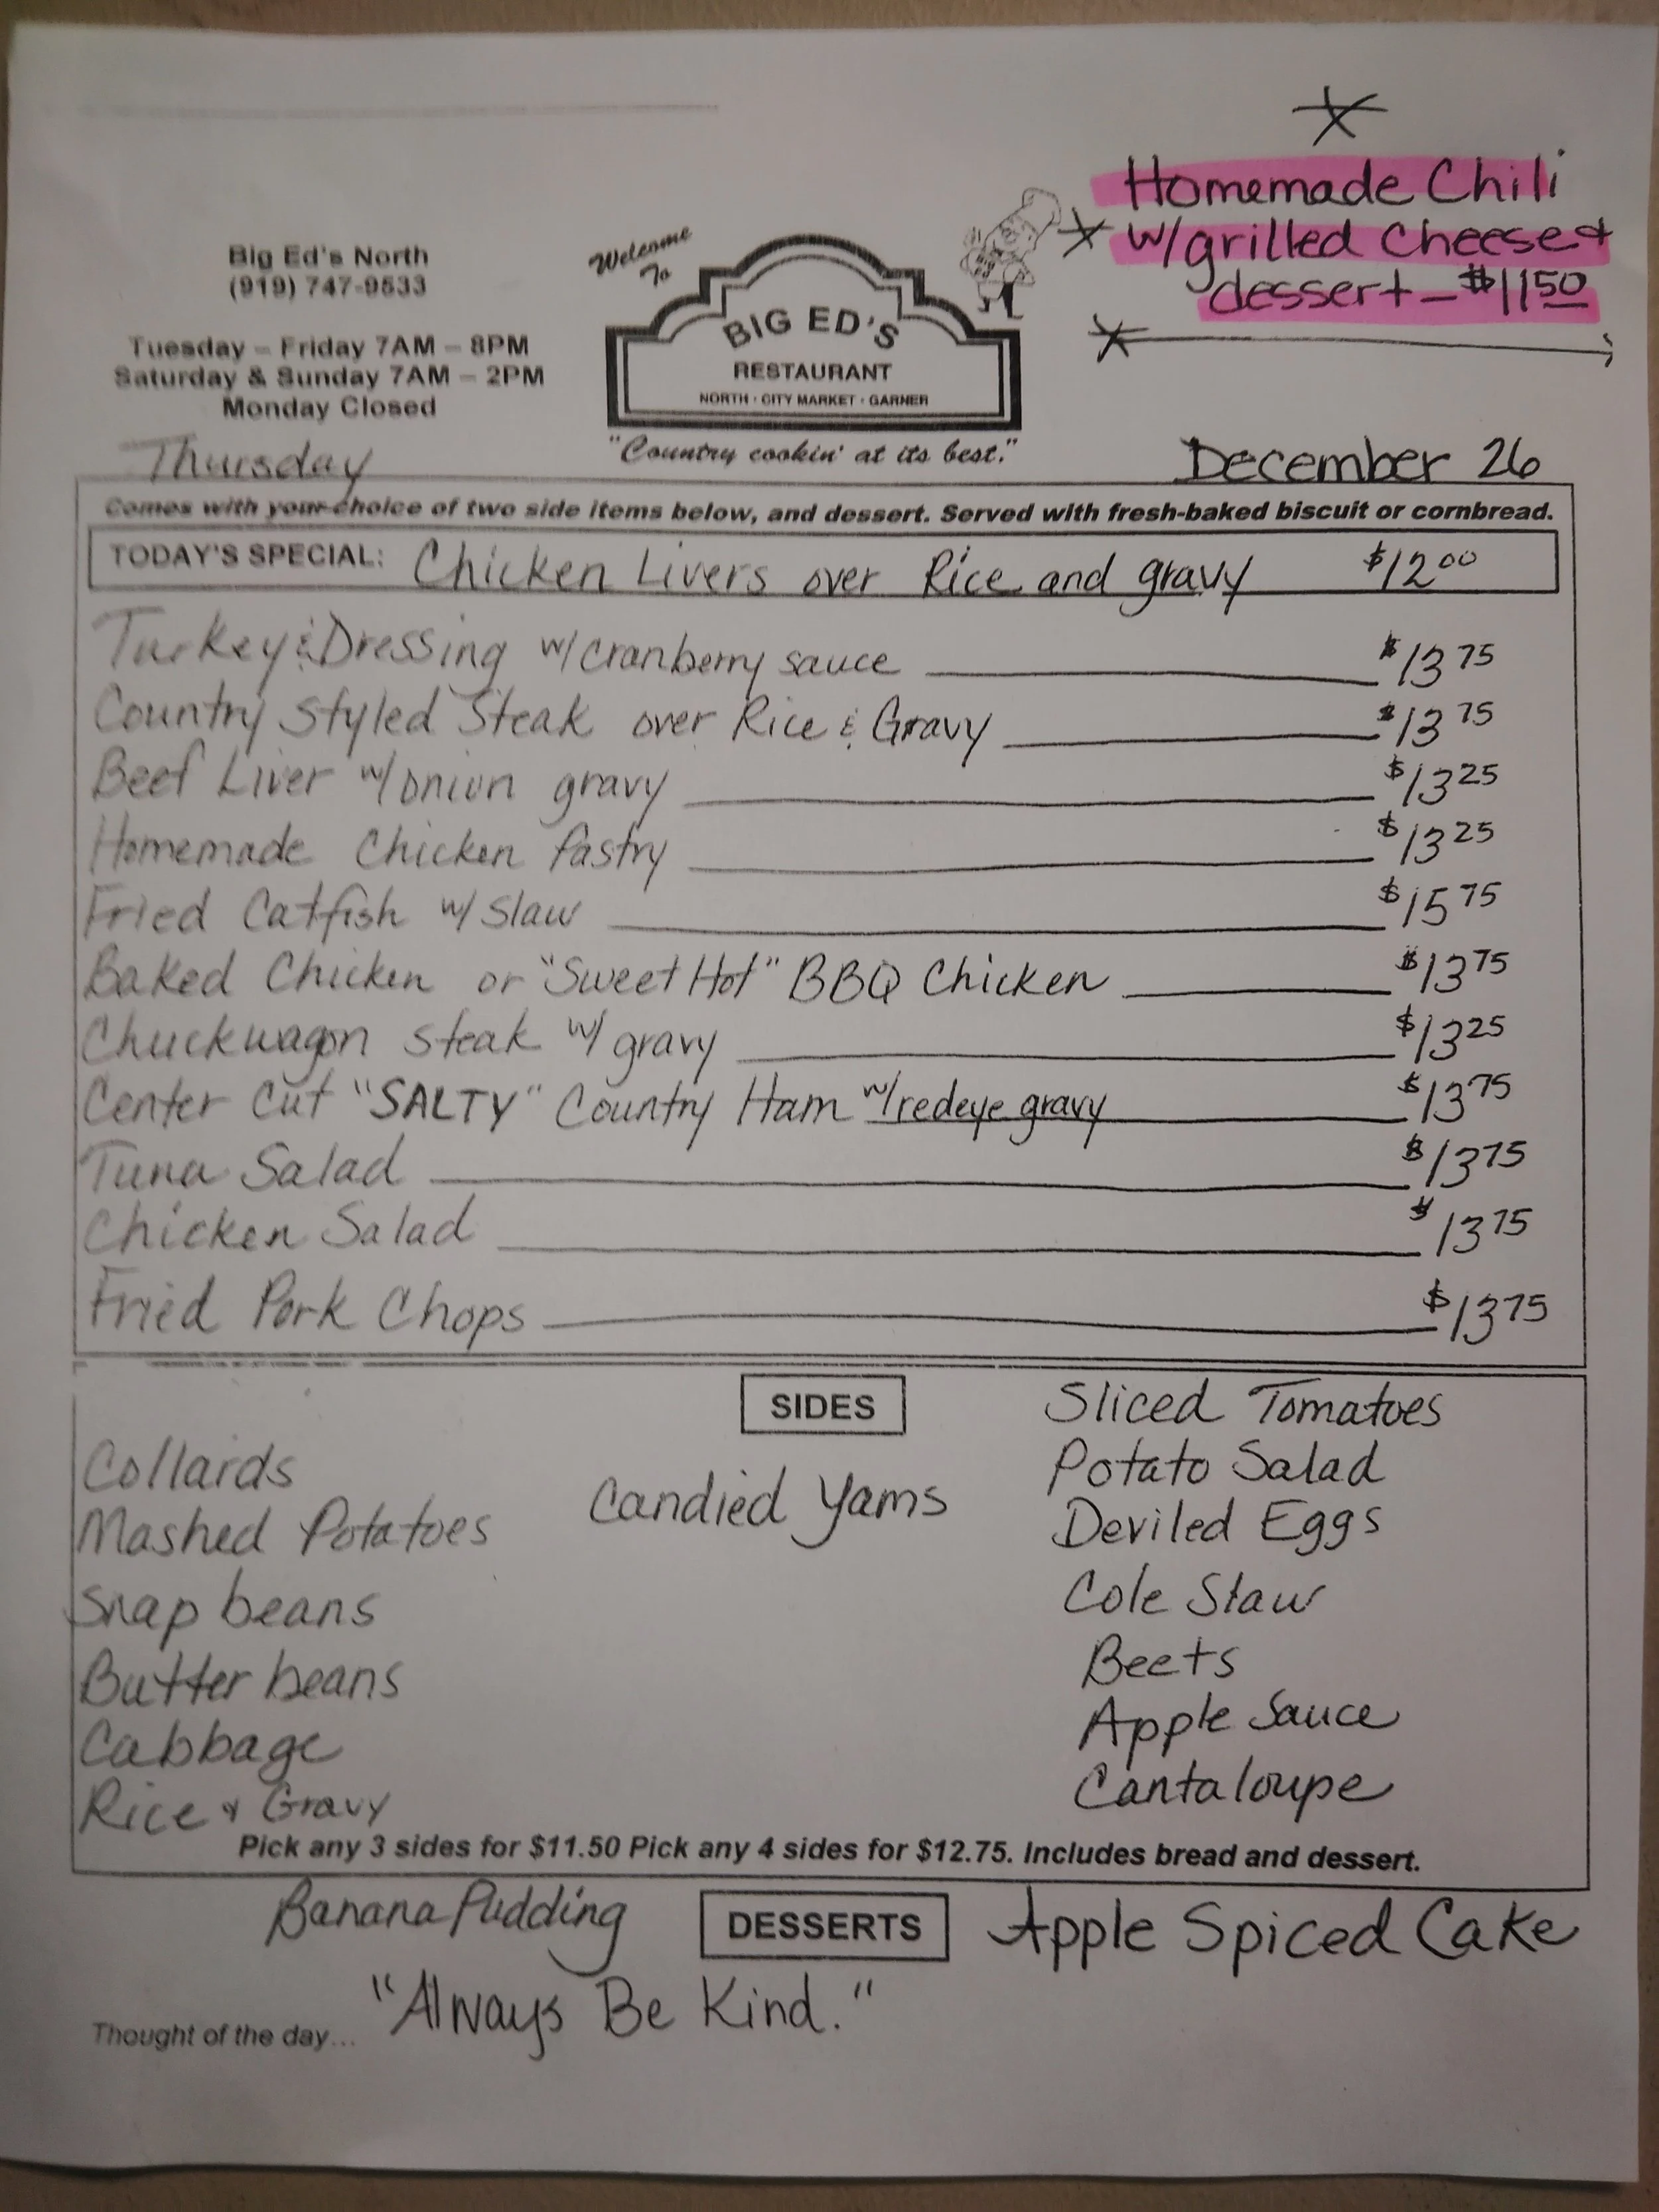 Homemade Chili
w/grilled Cheese &
dessert – $11.50
Big Ed's North
(919) 747-9533
Tuesday – Friday 7AM – 8PM
Saturday & Sunday 7AM – 2PM
Monday Closed
Welcome
To
BIG ED'S
RESTAURANT
NORTH · CITY MARKET · GARNER
"Country cookin' at its best."
Thursday
December 26
Comes with your choice of two side items below, and dessert. Served with fresh-baked biscuit or cornbread.
TODAY'S SPECIAL: Chicken Livers over Rice and gravy $12.00
Turkey & Dressing w/cranberry sauce $13.75
Country Styled Steak over Rice & Gravy $13.75
Beef Liver w/onion gravy $13.25
Homemade Chicken Pastry $13.25
Fried Catfish w/ Slaw $15.75
Baked Chicken or "Sweet Hot" BBQ Chicken $13.75
Chuckwagon Steak w/ gravy $13.25
Center Cut "SALTY" Country Ham w/redeye gravy $13.75
Tuna Salad $13.75
Chicken Salad $13.75
Fried Pork Chops $13.75
SIDES
Collards
Mashed Potatoes
Snap beans
Butter beans
Cabbage
Rice & Gravy
Candied Yams
Sliced Tomatoes
Potato Salad
Deviled Eggs
Cole Slaw
Beets
Apple Sauce
Cantaloupe
Pick any 3 sides for $11.50 Pick any 4 sides for $12.75. Includes bread and dessert.
Banana Pudding
DESSERTS
Apple Spiced Cake
Thought of the day... "Always Be Kind."